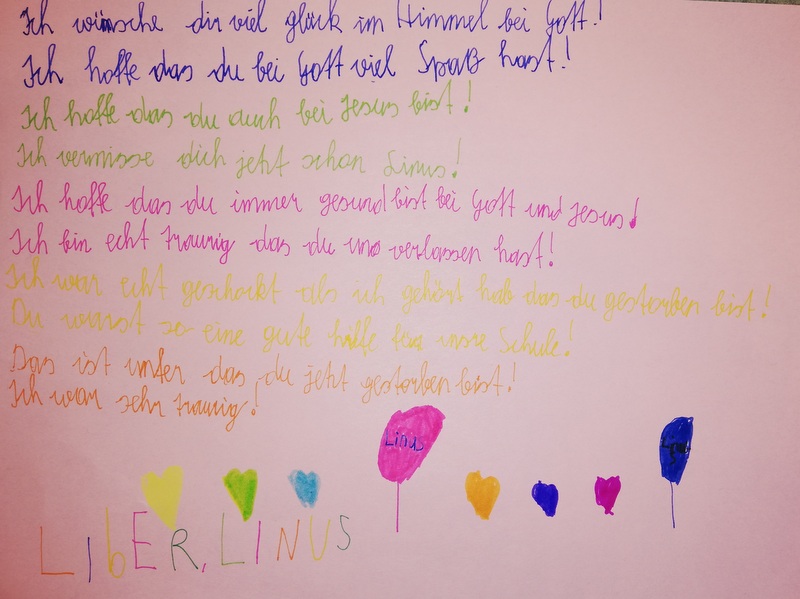 Ich wünsche dir viel glück im Himmel bei Gott!
Ich hoffe das du bei Gott viel Spaß hast!
Ich hoffe das du auch bei Jesus bist!
Ich vermisse dich jetzt schon Linus!
Ich hoffe das du immer gesund bist bei Gott und Jesus!
Ich bin echt traurig das du uns verlassen hast!
Ich war echt geschockt als ich gehört hab das du gestorben bist!
Du warst so eine gute hilfe für unsre Schule!
Das ist unfer das du jetzt gestorben bist!
Ich war sehr traurig!
Linus
LIbER, LINUS